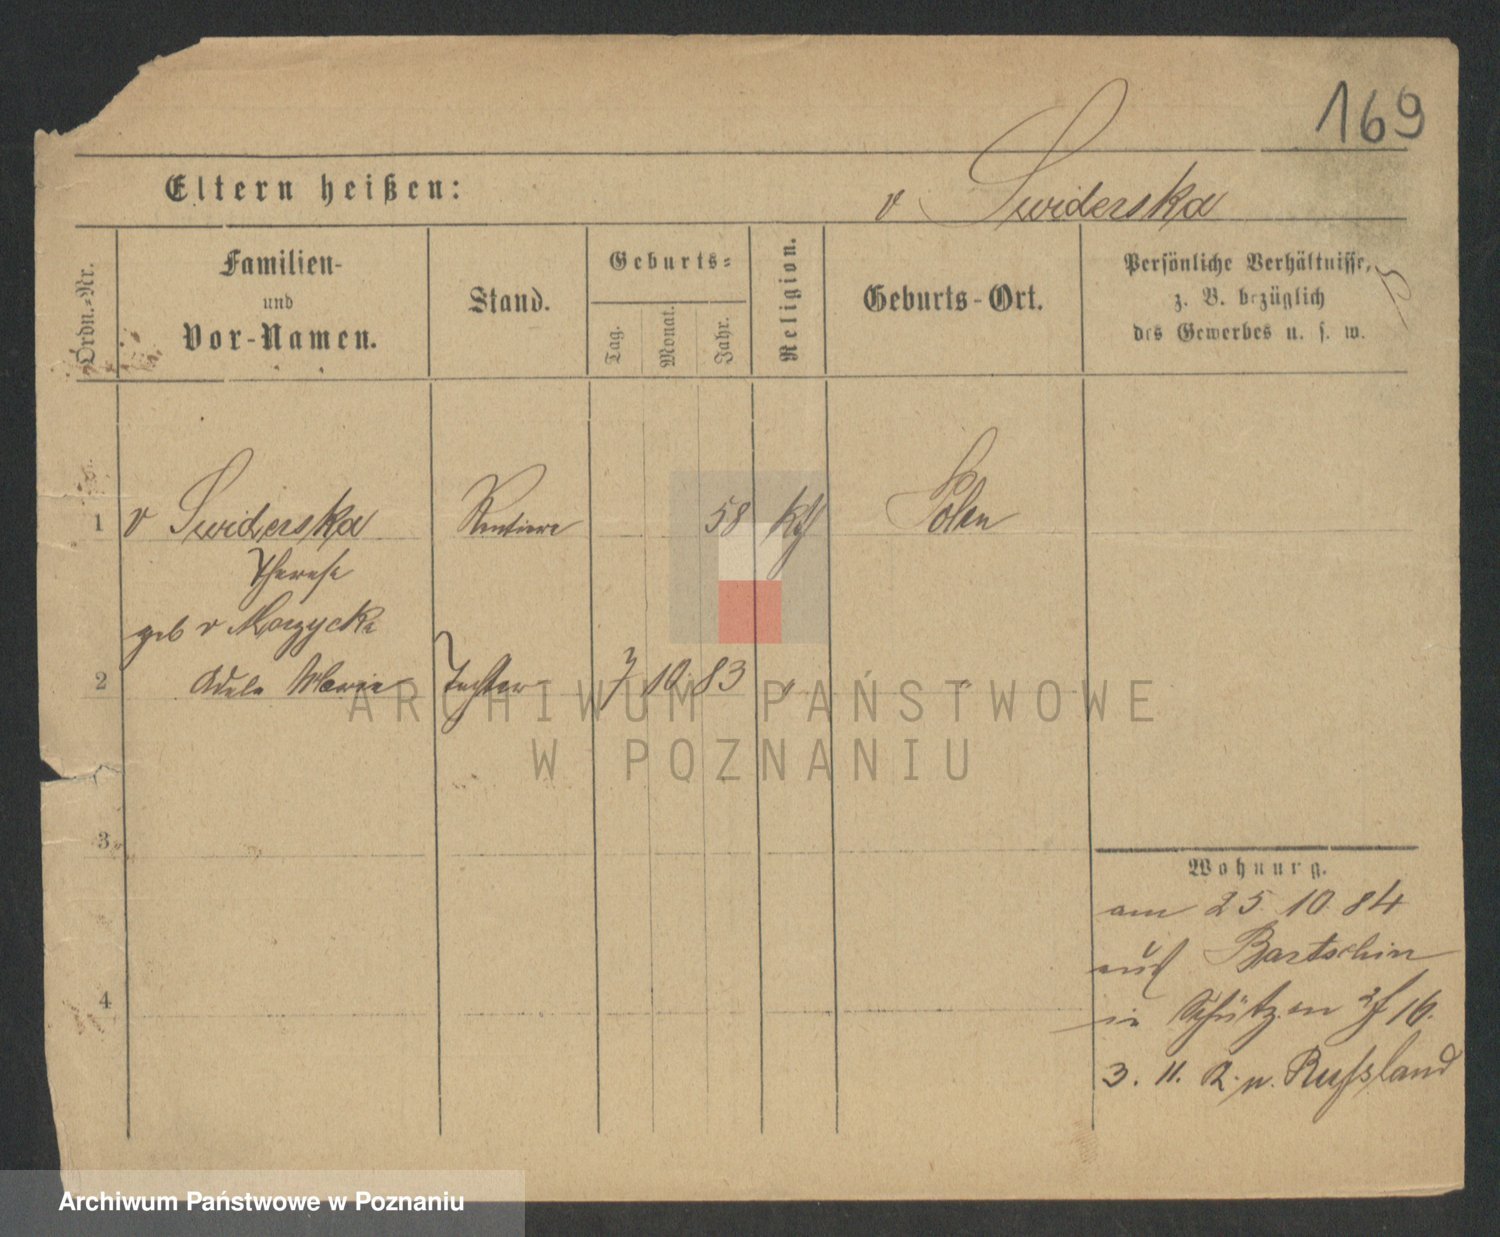 169
Eltern heißen:
v Swiderska
Ordn.-Nr.
Familien-
und
Vor-Namen.
Stand.
Geburts-
Tag.
Monat.
Jahr.
Religion.
Geburts-Ort.
Persönliche Verhältnisse,
z. B. bezüglich
des Gewerbes u. s. w.
1 v Swiderska Rentiere 58 Kth Polen
Therese
geb v
2 Adele Marie Tochter 7 10 83 " "
3
4
Wohnung.
am 25 10 84
aus Bartschin
in Schützen 16.
3. 11. R. n. Russland
ARCHIWUM PAŃSTWOWE
W POZNANIU
Archiwum Państwowe w Poznaniu